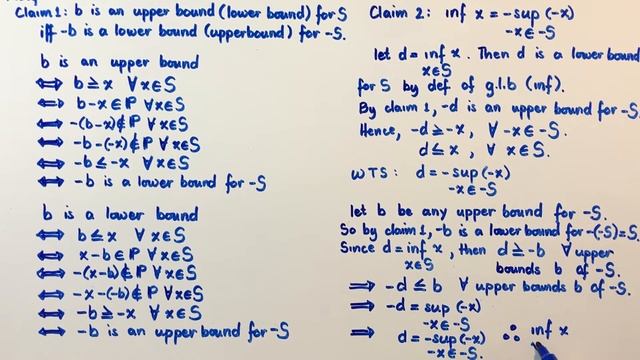 Claim 1: b is an upper bound (lower bound) for S
iff -b is a lower bound (upperbound) for -S.
b is an upper bound
⟺ b ≥ x ∀ x∈S
⟺ b-x ∈ ℙ ∀ x∈S
⟺ -(b-x) ∉ ℙ ∀ x∈S
⟺ -b-(-x) ∉ ℙ ∀ x∈S
⟺ -b ≤ -x ∀ x∈S
⟺ -b is a lower bound for -S
b is a lower bound
⟺ b ≤ x ∀ x∈S
⟺ x-b ∈ ℙ ∀ x∈S
⟺ -(x-b) ∉ ℙ ∀ x∈S
⟺ -x-(-b) ∉ ℙ ∀ x∈S
⟺ -b ≥ -x ∀ x∈S
⟺ -b is an upper bound for -S
Claim 2: inf x = -sup (-x)
-x ∈ -S
let d = inf x. Then d is a lower bound
x∈S
for S by def of g.l.b (inf).
By claim 1, -d is an upper bound for -S.
Hence, -d ≥ -x, ∀ -x ∈ -S.
d ≤ x, ∀ x∈S.
WTS: d = -sup (-x)
-x ∈ -S
let b be any upper bound for -S.
So by claim 1, -b is a lower bound for -(-S)=S.
Since d = inf x, then d ≥ -b ∀ upper
x∈S bounds b of -S.
⟹ -d ≤ b ∀ upper bounds b of -S.
⟹ -d = sup (-x)
-x ∈ -S
⟹ d = -sup (-x) ∴ inf x
-x ∈ -S.